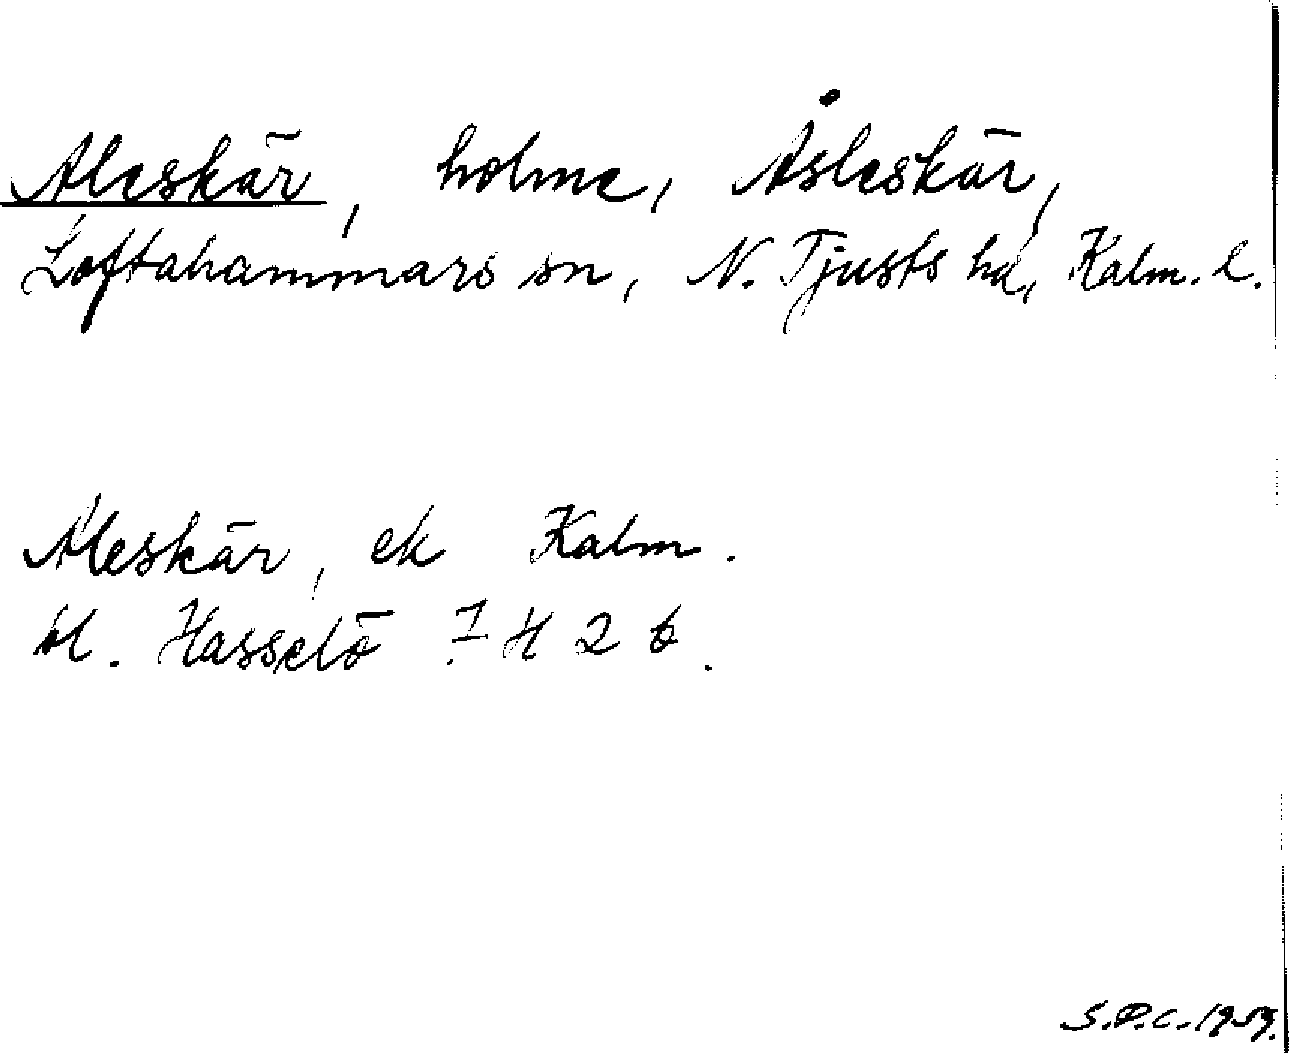 Aleskär, holme, Åsleskär,
Loftahammars sn, N. Tjusts hd, Kalm. l.
Aleskär, ek Kalm.
bl. Hasselö 7 H 2 b.
S.D.C. 1959.